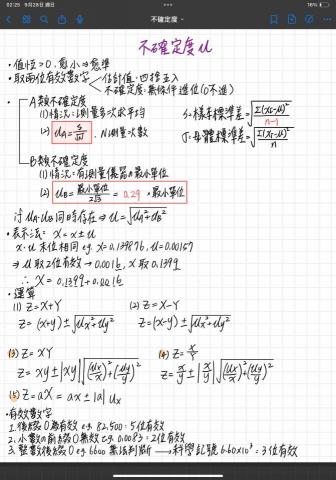 02:25 9月28日 週日
16%
不確定度
不確定度 u
・值恆>0,愈小⇒愈準
・取兩位有效數字 估計值:四捨五入
不確定度:無條件進位(0不進)
・A類不確定度
(1)情況:有測量多次求平均
(2) u_A = s/√N , N:測量次數
s:樣本標準差 = √(Σ(xᵢ-μ)²/(n-1))
σ:母體標準差 = √(Σ(xᵢ-μ)²/n)
B類不確定度
(1)情況:有測量儀器的最小單位
(2) u_B = 最小單位/2√3 = 0.29 × 最小單位
if u_A.u_B同時存在 ⇒ u = √(u_A²+u_B²)
・表示法: X = x ± u
x.u 末位相同 eg. x=0.139876, u=0.00157
⇒ u 取2位有效 → 0.0016, x 取 0.1399
∴ X = 0.1399±0.0016
・運算
(1) Z=X+Y (2) Z=X-Y
Z = (x+y) ± √(u_x²+u_y²) Z = (x-y) ± √(u_x²+u_y²)
(3) Z = XY (4) Z = X/Y
Z = xy ± |xy| √((u_x/x)²+(u_y/y)²) Z = x/y ± |x/y| √((u_x/x)²+(u_y/y)²)
(5) Z = aX = ax ± |a| u_x
・有效數字
1. 後綴0為有效 eg. 82.500 : 5位有效
2. 小數的前綴0無效 eg. 0.0083 : 2位有效
3. 整數後綴0 eg. 6600 無法判斷 → 科學記號 6.60×10³ : 3位有效